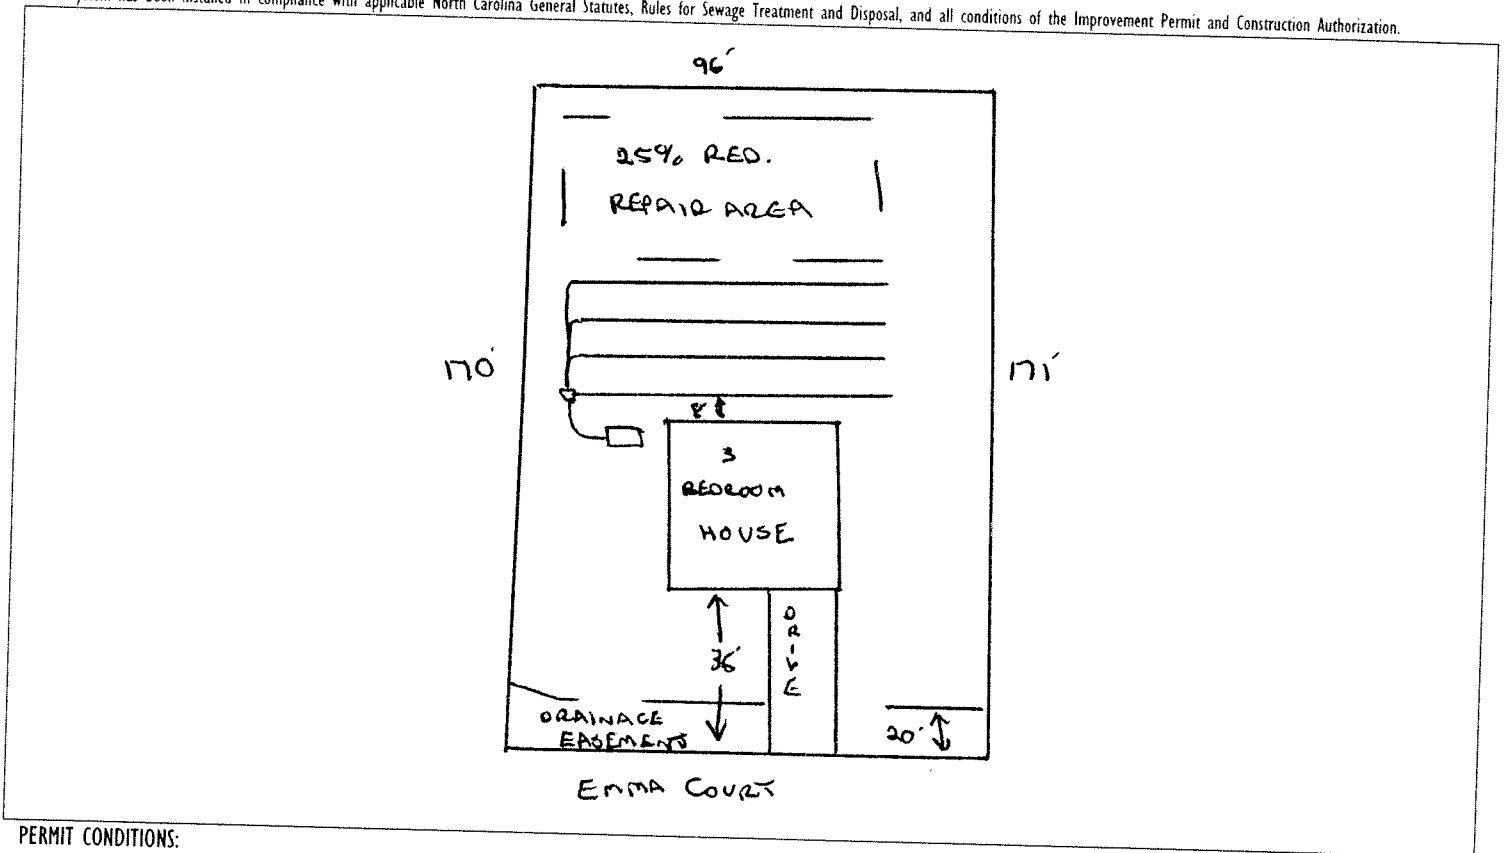 has been installed in compliance with applicable North Carolina General Statutes, Rules for Sewage Treatment and Disposal, and all conditions of the Improvement Permit and Construction Authorization.
96'
25% RED.
REPAIR AREA
170'
171'
8'
3
BEDROOM
HOUSE
DRIVE
36'
DRAINAGE
EASEMENT
20'
EMMA COURT
PERMIT CONDITIONS: